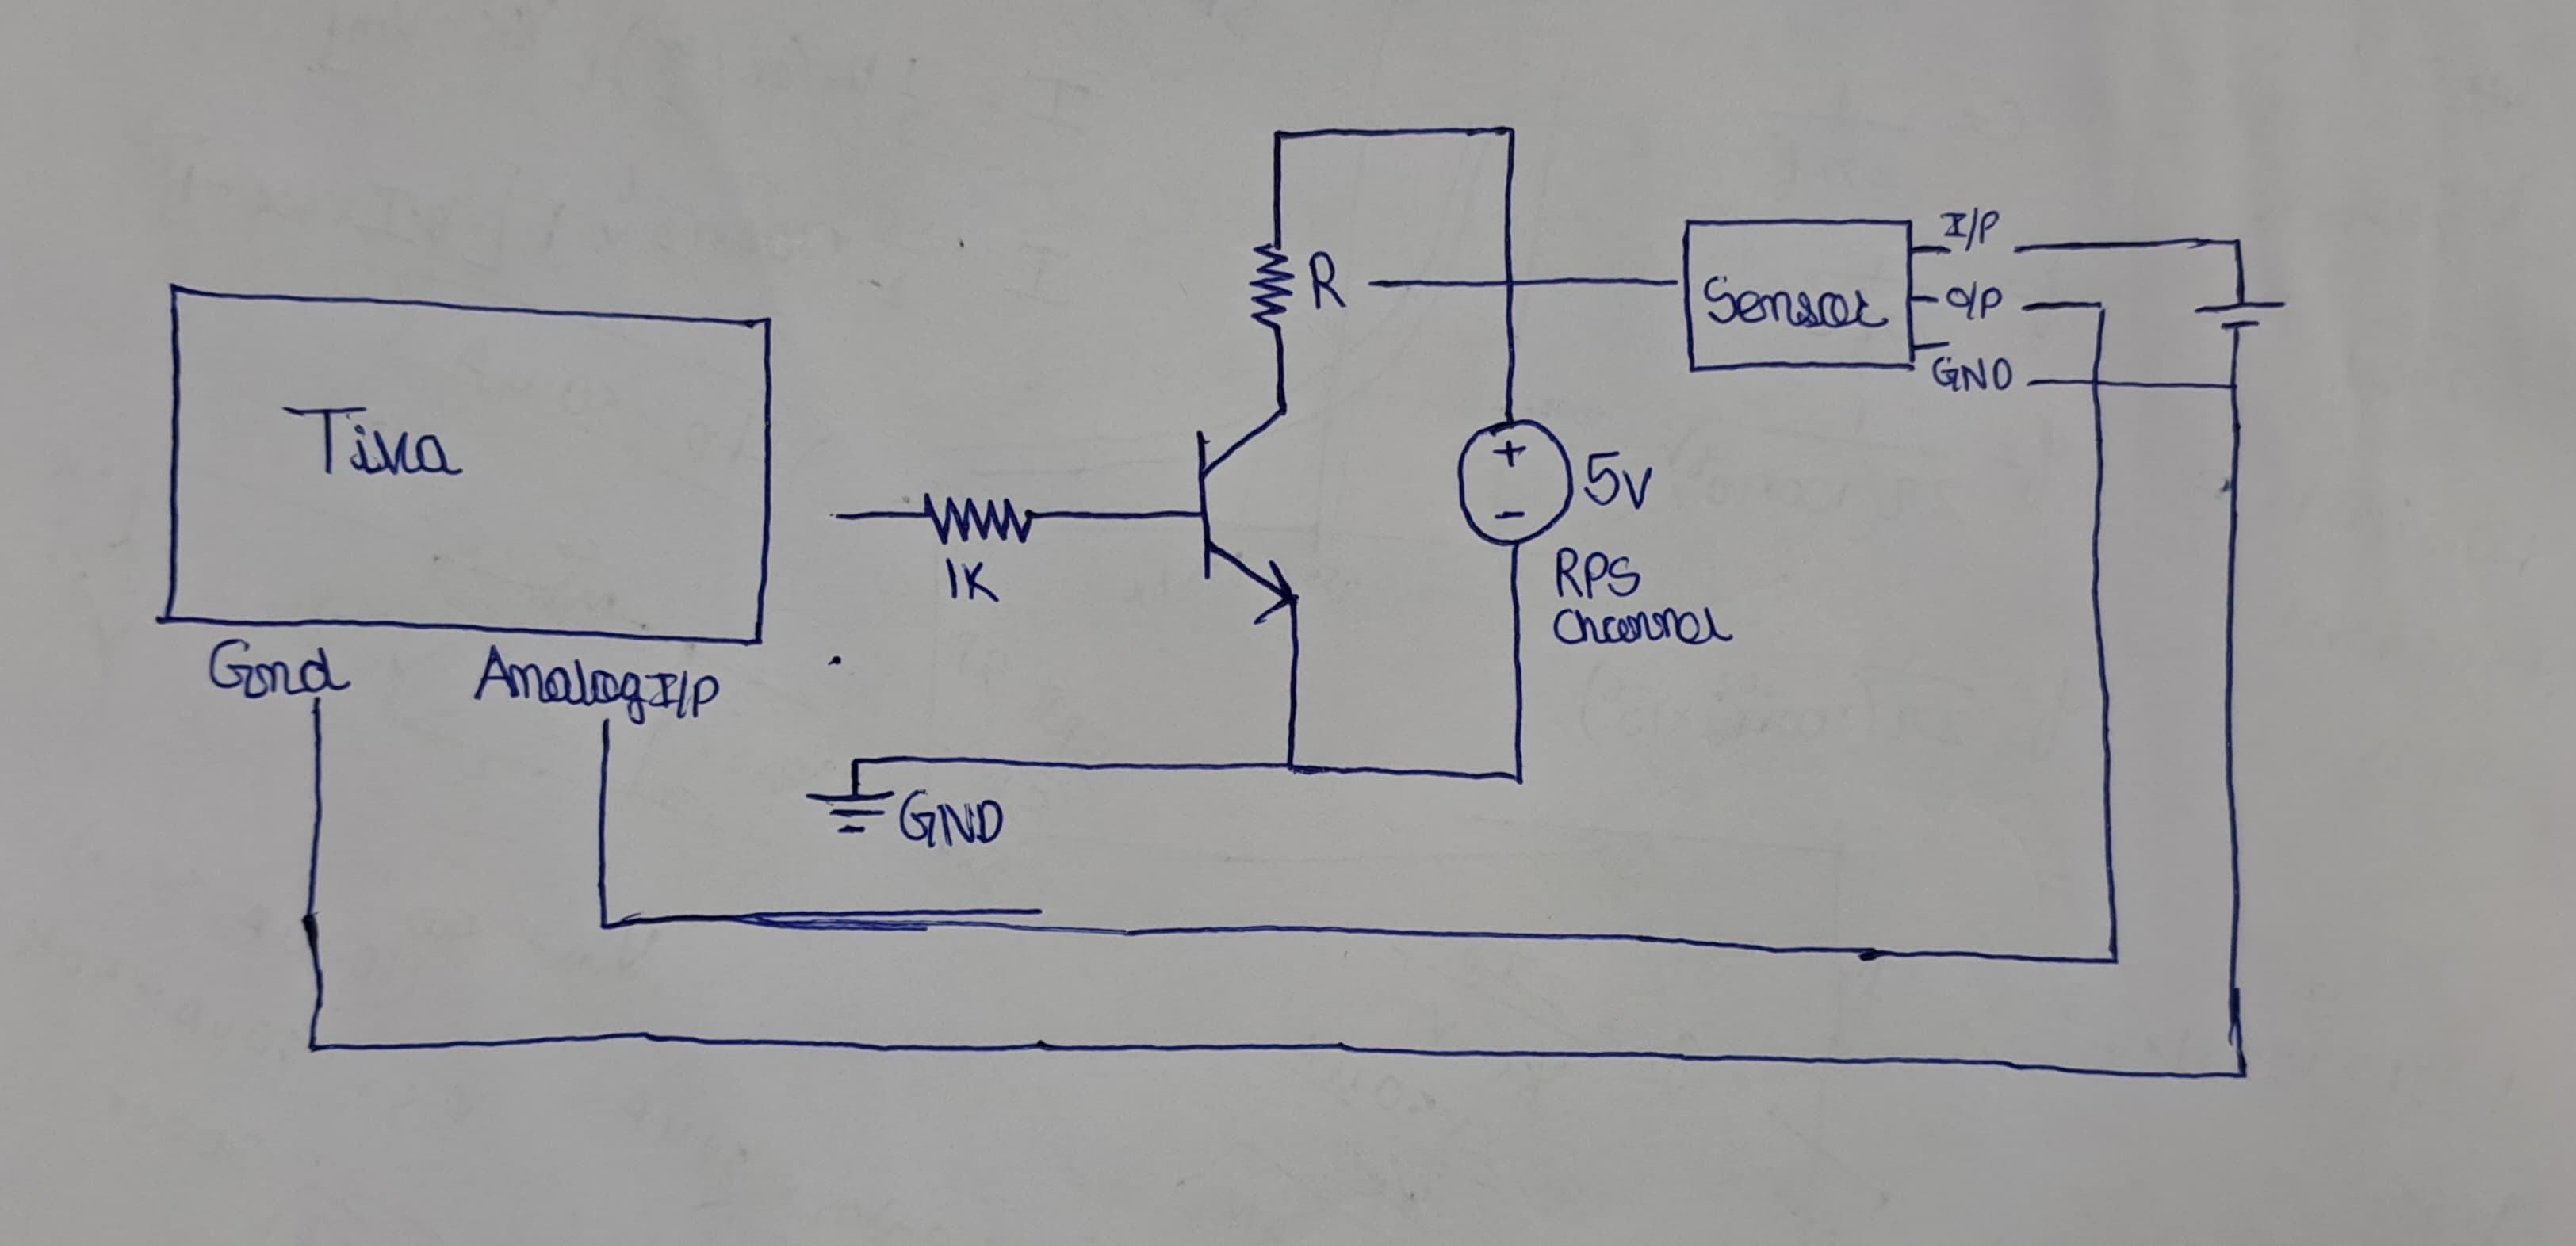 Tiva
Gnd
Analog I/P
1K
R
+
-
5v
RPS
Channel
GND
Sensor
I/P
O/P
GND